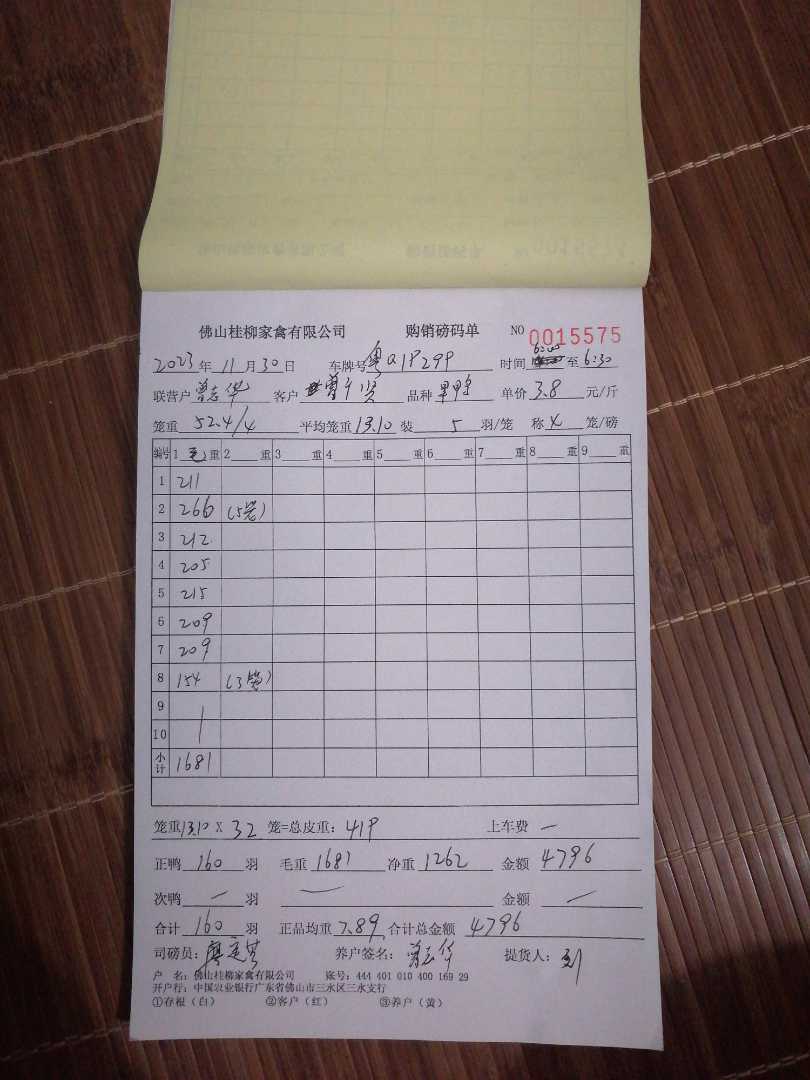 佛山桂柳家禽有限公司 购销磅码单 NO 0015575
2023年 11月 30日 车牌号 粤 时间 6:00 至 6:30
联营户 曾志华 客户 曾 贤 品种 单价 3.8 元/斤
笼重 52.4/4 平均笼重 13.10 装 5 羽/笼 称 4 笼/磅
编号 1 毛 重 2 重 3 重 4 重 5 重 6 重 7 重 8 重 9 重
1 211
2 266 (5笼)
3 212
4 205
5 215
6 209
7 209
8 154 (3笼)
9
10
小计 1681
笼重 13.10 X 32 笼=总皮重: 419 上车费 —
正鸭 160 羽 毛重 1681 净重 1262 金额 4796
次鸭 — 羽 — 金额 —
合计 160 羽 正品均重 7.89 合计总金额 4796
司磅员: 廖 养户签名: 曾志华 提货人: 刘
户 名: 佛山桂柳家禽有限公司 账号: 444 401 010 400 169 29
开户行: 中国农业银行广东省佛山市三水区三水支行
①存根(白) ②客户(红) ③养户(黄)